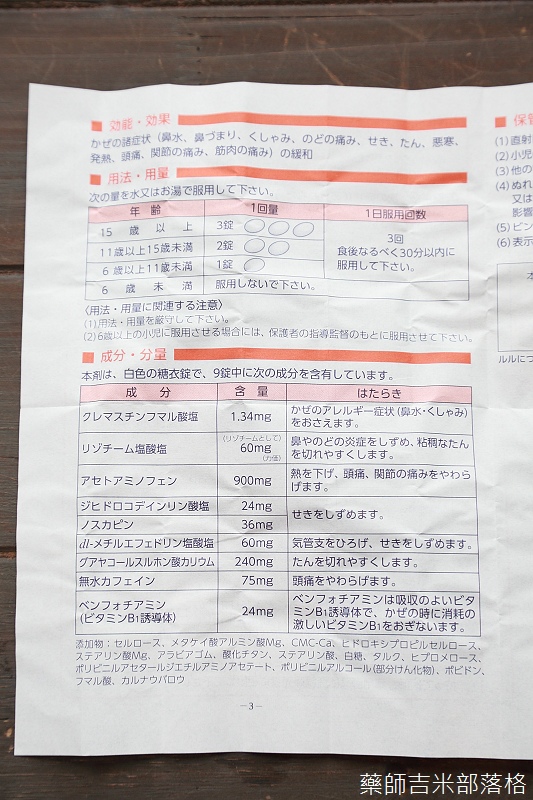 ■ 効能・効果
かぜの諸症状（鼻水、鼻づまり、くしゃみ、のどの痛み、せき、たん、悪寒、
発熱、頭痛、関節の痛み、筋肉の痛み）の緩和
■ 用法・用量
次の量を水又はお湯で服用して下さい。
年齢 1回量 1日服用回数
15歳以上 3錠
11歳以上15歳未満 2錠
6歳以上11歳未満 1錠
3回
食後なるべく30分以内に
服用して下さい。
6歳未満 服用しないで下さい。
〈用法・用量に関連する注意〉
(1)用法・用量を厳守して下さい。
(2)6歳以上の小児に服用させる場合には、保護者の指導監督のもとに服用させて下さい。
■ 成分・分量
本剤は、白色の糖衣錠で、9錠中に次の成分を含有しています。
成分 含量 はたらき
クレマスチンフマル酸塩 1.34mg かぜのアレルギー症状（鼻水・くしゃみ）
をおさえます。
リゾチーム塩酸塩 (リゾチームとして) 60mg (力価) 鼻やのどの炎症をしずめ、粘稠なたん
を切れやすくします。
アセトアミノフェン 900mg 熱を下げ、頭痛、関節の痛みをやわら
げます。
ジヒドロコデインリン酸塩 24mg せきをしずめます。
ノスカピン 36mg
dl-メチルエフェドリン塩酸塩 60mg 気管支をひろげ、せきをしずめます。
グアヤコールスルホン酸カリウム 240mg たんを切れやすくします。
無水カフェイン 75mg 頭痛をやわらげます。
ベンフォチアミン
(ビタミンB1誘導体) 24mg ベンフォチアミンは吸収のよいビタ
ミンB1誘導体で、かぜの時に消耗の
激しいビタミンB1をおぎないます。
添加物：セルロース、メタケイ酸アルミン酸Mg、CMC-Ca、ヒドロキシプロピルセルロース、
ステアリン酸Mg、アラビアゴム、酸化チタン、ステアリン酸、白糖、タルク、ヒプロメロース、
ポリビニルアセタールジエチルアミノアセテート、ポリビニルアルコール(部分けん化物)、ポビドン、
フマル酸、カルナウバロウ
－3－
■ 保管
(1)直射
(2)小児
(3)他の
(4)ぬれ
又は
影響
(5)ビン
(6)表示
本
ルルにつ
藥師吉米部落格